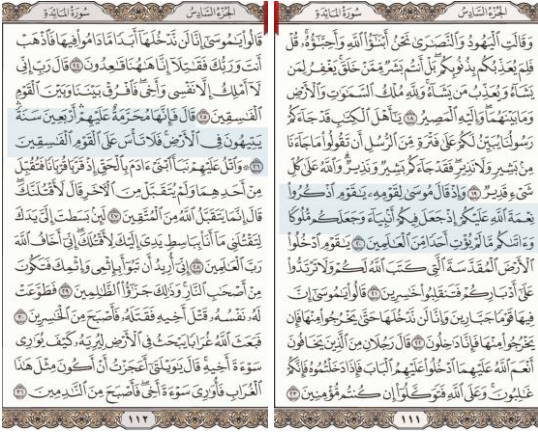 الجزء السادس
سورة المائدة
وَقَالَتِ ٱلۡيَهُودُ وَٱلنَّصَٰرَىٰ نَحۡنُ أَبۡنَٰٓؤُاْ ٱللَّهِ وَأَحِبَّٰٓؤُهُۥۚ قُلۡ
فَلِمَ يُعَذِّبُكُم بِذُنُوبِكُمۖ بَلۡ أَنتُم بَشَرٞ مِّمَّنۡ خَلَقَۚ يَغۡفِرُ لِمَن
يَشَآءُ وَيُعَذِّبُ مَن يَشَآءُۚ وَلِلَّهِ مُلۡكُ ٱلسَّمَٰوَٰتِ وَٱلۡأَرۡضِ
وَمَا بَيۡنَهُمَاۖ وَإِلَيۡهِ ٱلۡمَصِيرُ ١٨ يَٰٓأَهۡلَ ٱلۡكِتَٰبِ قَدۡ جَآءَكُمۡ
رَسُولُنَا يُبَيِّنُ لَكُمۡ عَلَىٰ فَتۡرَةٖ مِّنَ ٱلرُّسُلِ أَن تَقُولُواْ مَا جَآءَنَا
مِنۢ بَشِيرٖ وَلَا نَذِيرٖۖ فَقَدۡ جَآءَكُم بَشِيرٞ وَنَذِيرٞۗ وَٱللَّهُ عَلَىٰ كُلِّ
شَيۡءٖ قَدِيرٞ ١٩ وَإِذۡ قَالَ مُوسَىٰ لِقَوۡمِهِۦ يَٰقَوۡمِ ٱذۡكُرُواْ
نِعۡمَةَ ٱللَّهِ عَلَيۡكُمۡ إِذۡ جَعَلَ فِيكُمۡ أَنۢبِيَآءَ وَجَعَلَكُم مُّلُوكٗا
وَءَاتَىٰكُم مَّا لَمۡ يُؤۡتِ أَحَدٗا مِّنَ ٱلۡعَٰلَمِينَ ٢٠ يَٰقَوۡمِ ٱدۡخُلُواْ
ٱلۡأَرۡضَ ٱلۡمُقَدَّسَةَ ٱلَّتِي كَتَبَ ٱللَّهُ لَكُمۡ وَلَا تَرۡتَدُّواْ
عَلَىٰٓ أَدۡبَارِكُمۡ فَتَنقَلِبُواْ خَٰسِرِينَ ٢١ قَالُواْ يَٰمُوسَىٰٓ إِنَّ
فِيهَا قَوۡمٗا جَبَّارِينَ وَإِنَّا لَن نَّدۡخُلَهَا حَتَّىٰ يَخۡرُجُواْ مِنۡهَا فَإِن
يَخۡرُجُواْ مِنۡهَا فَإِنَّا دَٰخِلُونَ ٢٢ قَالَ رَجُلَانِ مِنَ ٱلَّذِينَ يَخَافُونَ
أَنۡعَمَ ٱللَّهُ عَلَيۡهِمَا ٱدۡخُلُواْ عَلَيۡهِمُ ٱلۡبَابَ فَإِذَا دَخَلۡتُمُوهُ فَإِنَّكُمۡ
غَٰلِبُونَۚ وَعَلَى ٱللَّهِ فَتَوَكَّلُوٓاْ إِن كُنتُم مُّؤۡمِنِينَ ٢٣
١١١
الجزء السادس
سورة المائدة
قَالُواْ يَٰمُوسَىٰٓ إِنَّا لَن نَّدۡخُلَهَآ أَبَدٗا مَّا دَامُواْ فِيهَا فَٱذۡهَبۡ
أَنتَ وَرَبُّكَ فَقَٰتِلَآ إِنَّا هَٰهُنَا قَٰعِدُونَ ٢٤ قَالَ رَبِّ إِنِّي
لَآ أَمۡلِكُ إِلَّا نَفۡسِي وَأَخِيۖ فَٱفۡرُقۡ بَيۡنَنَا وَبَيۡنَ ٱلۡقَوۡمِ
ٱلۡفَٰسِقِينَ ٢٥ قَالَ فَإِنَّهَا مُحَرَّمَةٌ عَلَيۡهِمۡۛ أَرۡبَعِينَ سَنَةٗۛ
يَتِيهُونَ فِي ٱلۡأَرۡضِۚ فَلَا تَأۡسَ عَلَى ٱلۡقَوۡمِ ٱلۡفَٰسِقِينَ
٢٦ ۞ وَٱتۡلُ عَلَيۡهِمۡ نَبَأَ ٱبۡنَيۡ ءَادَمَ بِٱلۡحَقِّ إِذۡ قَرَّبَا قُرۡبَانٗا فَتُقُبِّلَ
مِنۡ أَحَدِهِمَا وَلَمۡ يُتَقَبَّلۡ مِنَ ٱلۡأٓخَرِ قَالَ لَأَقۡتُلَنَّكَۖ
قَالَ إِنَّمَا يَتَقَبَّلُ ٱللَّهُ مِنَ ٱلۡمُتَّقِينَ ٢٧ لَئِنۢ بَسَطتَ إِلَيَّ يَدَكَ
لِتَقۡتُلَنِي مَآ أَنَا۠ بِبَاسِطٖ يَدِيَ إِلَيۡكَ لِأَقۡتُلَكَۖ إِنِّيٓ أَخَافُ ٱللَّهَ
رَبَّ ٱلۡعَٰلَمِينَ ٢٨ إِنِّيٓ أُرِيدُ أَن تَبُوٓأَ بِإِثۡمِي وَإِثۡمِكَ فَتَكُونَ
مِنۡ أَصۡحَٰبِ ٱلنَّارِۚ وَذَٰلِكَ جَزَٰٓؤُاْ ٱلظَّٰلِمِينَ ٢٩ فَطَوَّعَتۡ
لَهُۥ نَفۡسُهُۥ قَتۡلَ أَخِيهِ فَقَتَلَهُۥ فَأَصۡبَحَ مِنَ ٱلۡخَٰسِرِينَ ٣٠
فَبَعَثَ ٱللَّهُ غُرَابٗا يَبۡحَثُ فِي ٱلۡأَرۡضِ لِيُرِيَهُۥ كَيۡفَ يُوَٰرِي
سَوۡءَةَ أَخِيهِۚ قَالَ يَٰوَيۡلَتَىٰٓ أَعَجَزۡتُ أَنۡ أَكُونَ مِثۡلَ هَٰذَا
ٱلۡغُرَابِ فَأُوَٰرِيَ سَوۡءَةَ أَخِيۖ فَأَصۡبَحَ مِنَ ٱلنَّٰدِمِينَ ٣١
١١٢